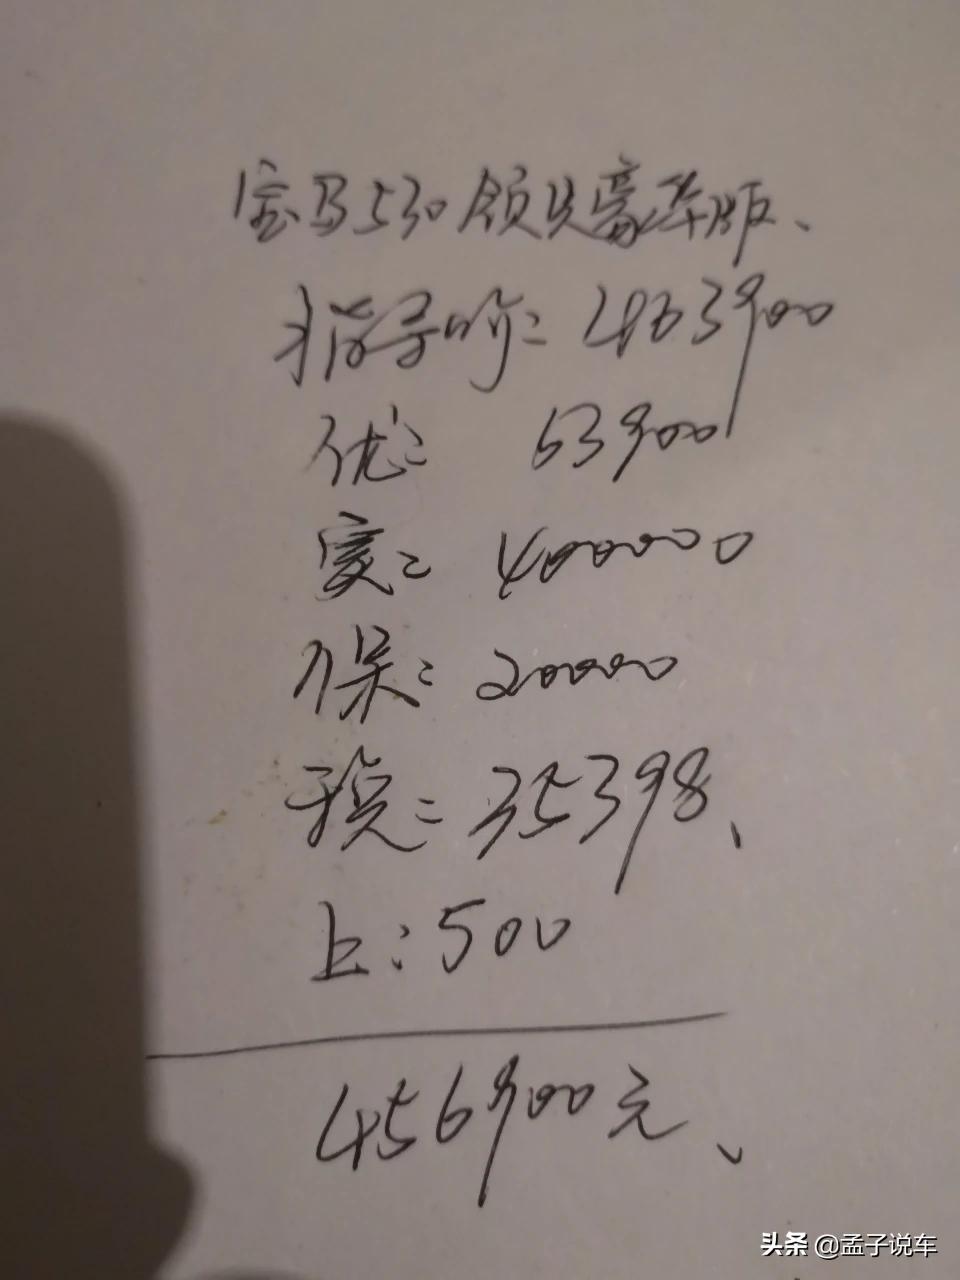 宝马530领先豪华版、
指导价: 463900
优: 63900
实: 400000
保: 20000
税: 35398、
上: 500
456900元、
头条 @孟子说车